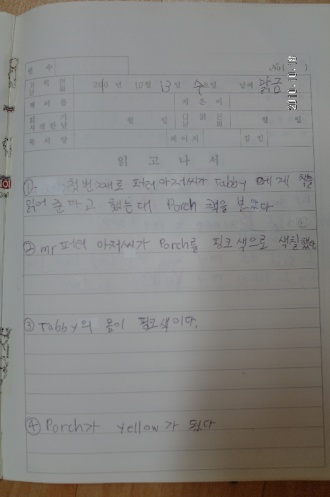 No.
2010 년 10월 13일 수요일 날씨 맑음
지은이
월 일
월 일
페이지
읽 고 나 서
① 첫번째로 퍼티 아저씨가 Tabby 에게 책을
읽어 준다고 했는데 Porch 책을 보았다
② mr 퍼티 아저씨가 Porch를 핑크색으로 색칠했다
③ Tabby의 몸이 핑크색이다.
④ Porch가 yellow가 됬다